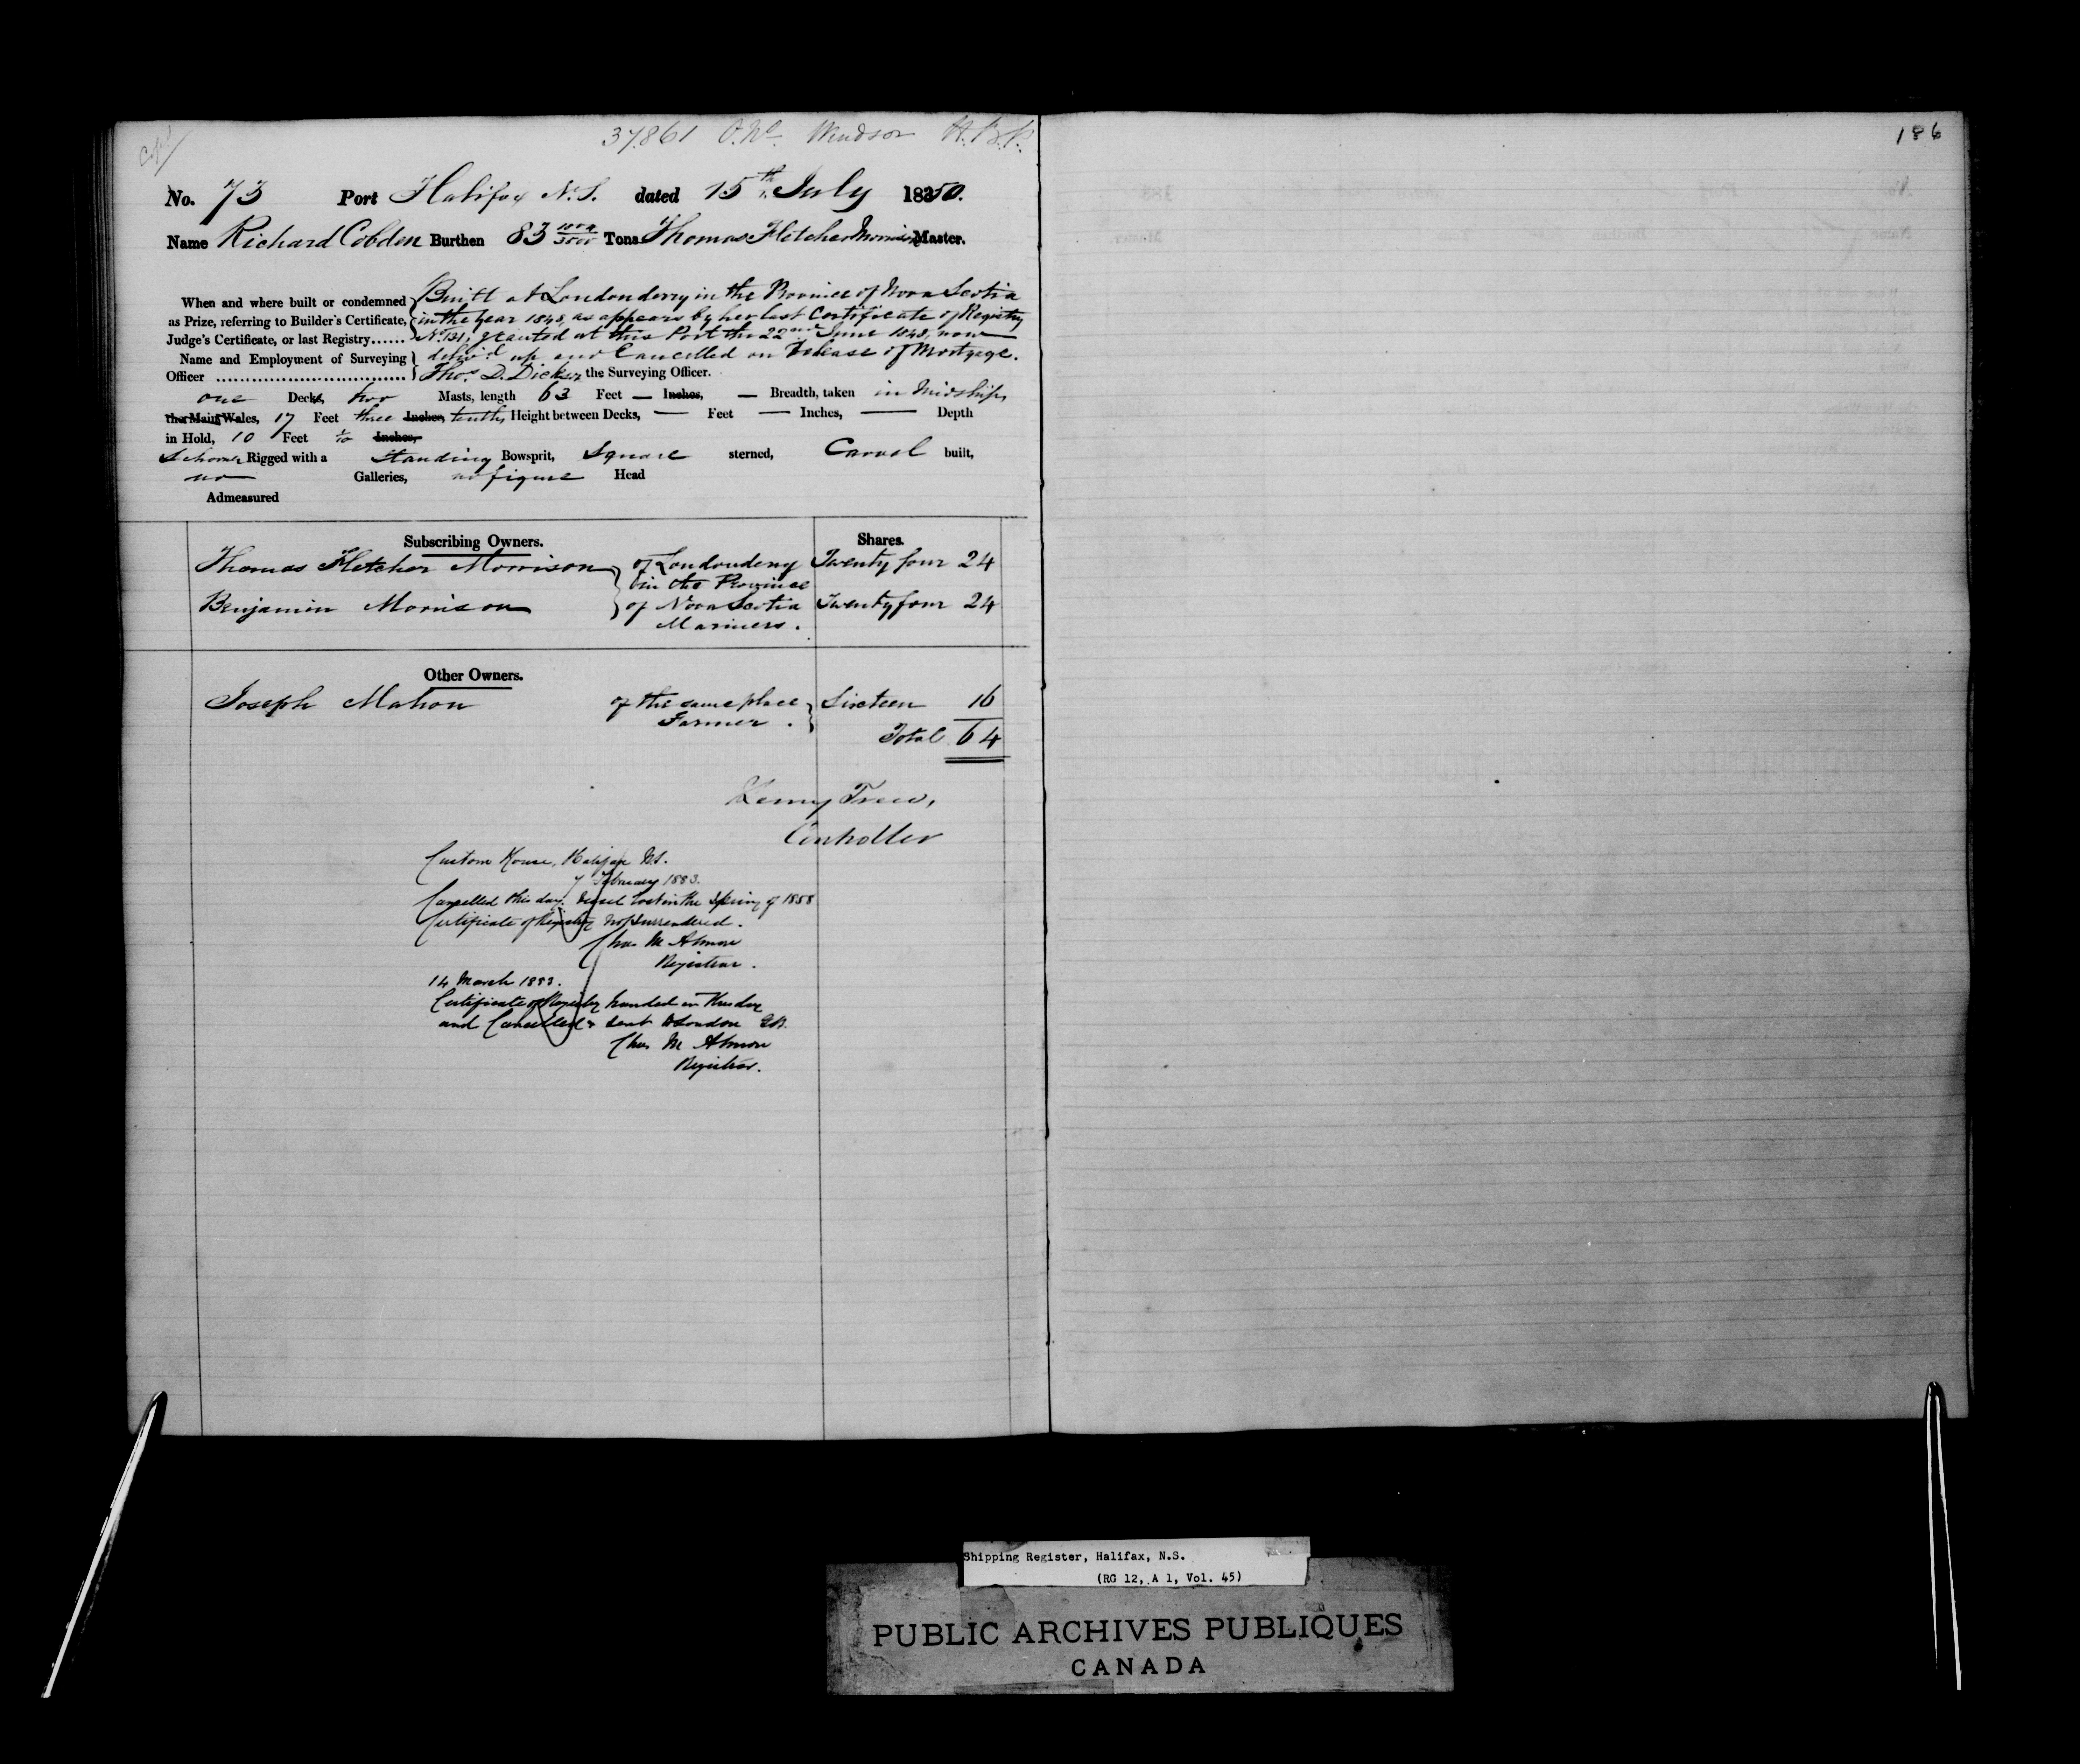 37861 O.No. Windsor
186
No. 73 Port Halifax N.S. dated 15th July 1850.
Name Richard Cobden Burthen 83 Tons Thomas Fletcher Morrison Master.
When and where built or condemned as Prize, referring to Builder's Certificate, Judge's Certificate, or last Registry......
Built at Londonderry in the Province of Nova Scotia
in the Year 1848, as appears by her last Certificate of Registry
No. 131, granted at this Port the 22nd June 1848, now
deliv'd up and Cancelled on Release of Mortgage.
Name and Employment of Surveying Officer
Thos. D. Dickson the Surveying Officer.
one Deck, two Masts, length 63 Feet — Inches, — Breadth, taken in Midships
the Main Wales, 17 Feet three Inches tenths, Height between Decks, — Feet — Inches, — Depth
in Hold, 10 Feet Inches,
Schooner Rigged with a Standing Bowsprit, Square sterned, Carvel built,
no Galleries, no figure Head
Admeasured
Subscribing Owners. Shares.
Thomas Fletcher Morrison of Londonderry Twenty four 24
in the Province
Benjamin Morrison of Nova Scotia Twenty four 24
Mariners.
Other Owners.
Joseph Mahon of the same place Sixteen 16
Farmer.
Total 64
Henry Trew,
Controller
Custom House, Halifax N.S.
7 February 1883.
Cancelled this day. Vessel lost in the Spring of 1858
Certificate of Registry not surrendered.
Chas M Almon
Registrar.
14 March 1883.
Certificate of Registry handed in this day
and Cancelled & sent to London
Chas M Almon
Registrar.
Shipping Register, Halifax, N.S.
(RG 12, A 1, Vol. 45)
PUBLIC ARCHIVES PUBLIQUES
CANADA